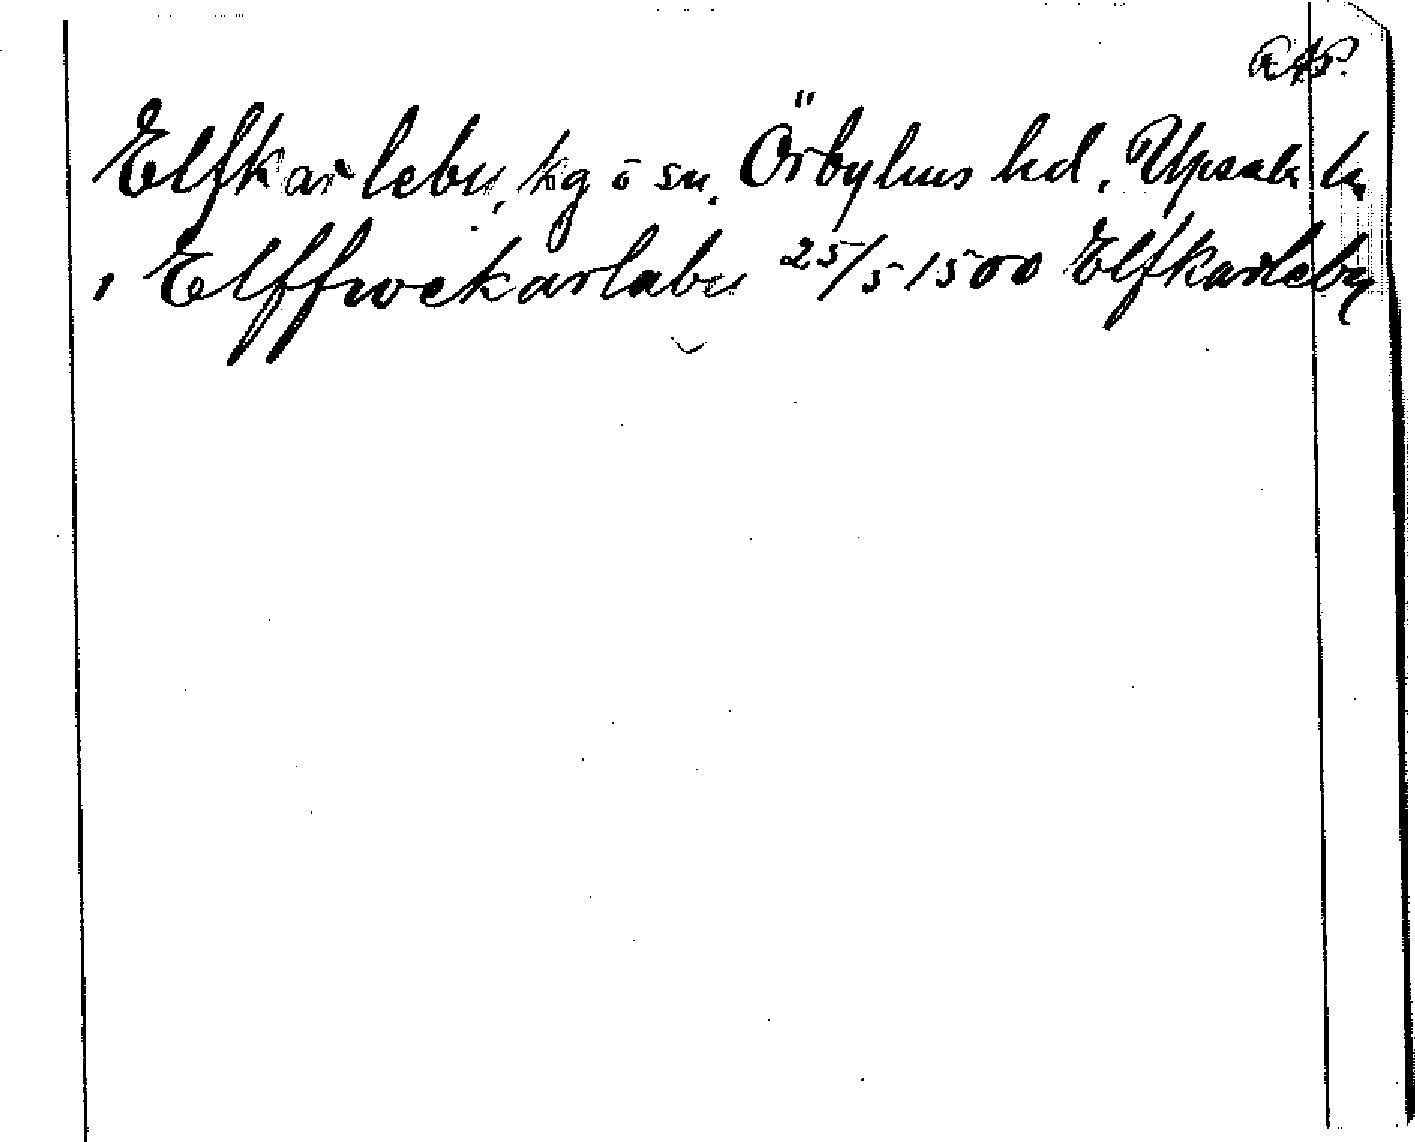 RAP.
Elfkarleby, kg o sn. Örbyhus hd. Upsala ln
i Elffwekarlaby 25/5 1500 Elfkarleby